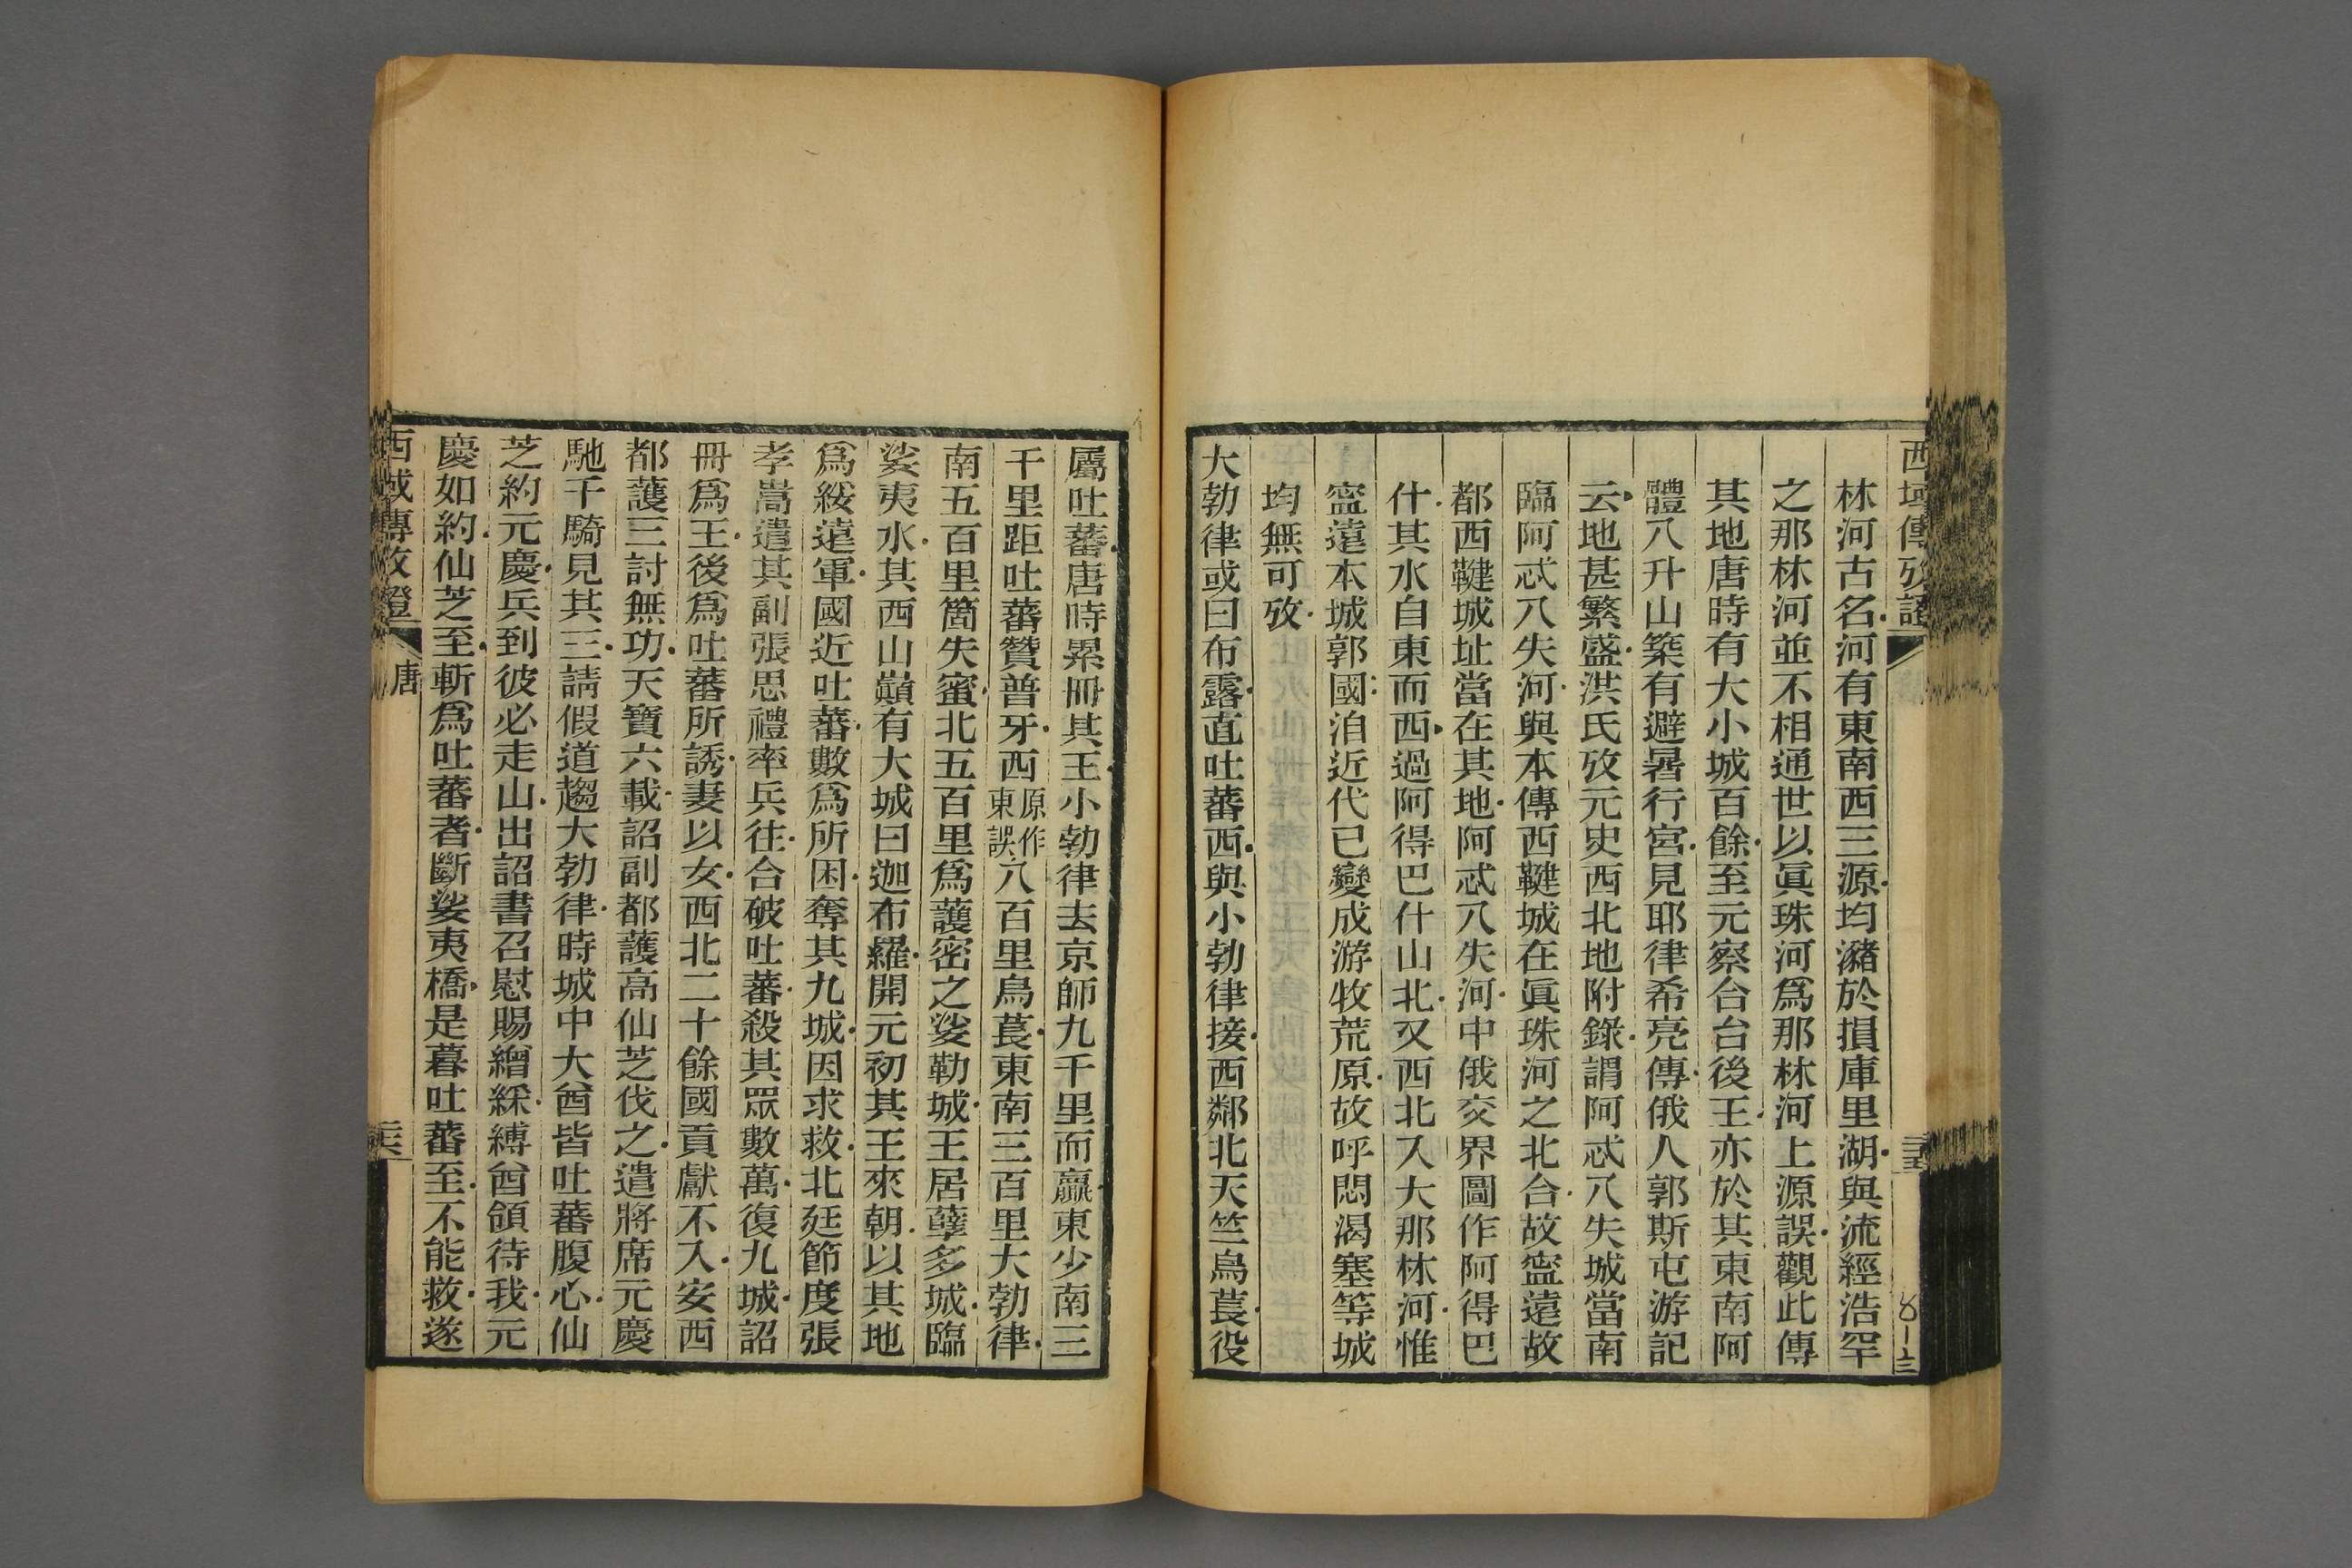 西域傳攷證
林河古名河有東南西三源均瀦於損庫里湖與流經浩罕
之那林河並不相通世以眞珠河爲那林河上源誤觀此傳
其地唐時有大小城百餘至元察合台後王亦於其東南阿
體八升山築有避暑行宮見耶律希亮傳俄人郭斯屯游記
云地甚繁盛洪氏攷元史西北地附錄謂阿忒八失城當南
臨阿忒八失河與本傳西鞬城在眞珠河之北合故寍遠故
都西鞬城址當在其地阿忒八失河中俄交界圖作阿得巴
什其水自東而西過阿得巴什山北又西北入大那林河惟
寍遠本城郭國洎近代已變成游牧荒原故呼悶渴塞等城
均無可攷
大勃律或曰布露直吐蕃西與小勃律接西鄰北天竺烏萇役
屬吐蕃唐時累冊其王小勃律去京師九千里而贏東少南三
千里距吐蕃贊普牙西原作東誤八百里烏萇東南三百里大勃律
南五百里箇失蜜北五百里爲護密之娑勒城王居孽多城臨
娑夷水其西山巓有大城曰迦布羅開元初其王來朝以其地
爲綏遠軍國近吐蕃數爲所困奪其九城因求救北廷節度張
孝嵩遣其副張思禮率兵往合破吐蕃殺其眾數萬復九城詔
冊爲王後爲吐蕃所誘妻以女西北二十餘國貢獻不入安西
都護三討無功天寶六載詔副都護高仙芝伐之遣將席元慶
馳千騎見其王請假道趨大勃律時城中大酋皆吐蕃腹心仙
芝約元慶兵到彼必走山出詔書召慰賜繒綵縛酋領待我元
慶如約仙芝至斬爲吐蕃者斷娑夷橋是暮吐蕃至不能救遂
西域傳攷證 唐